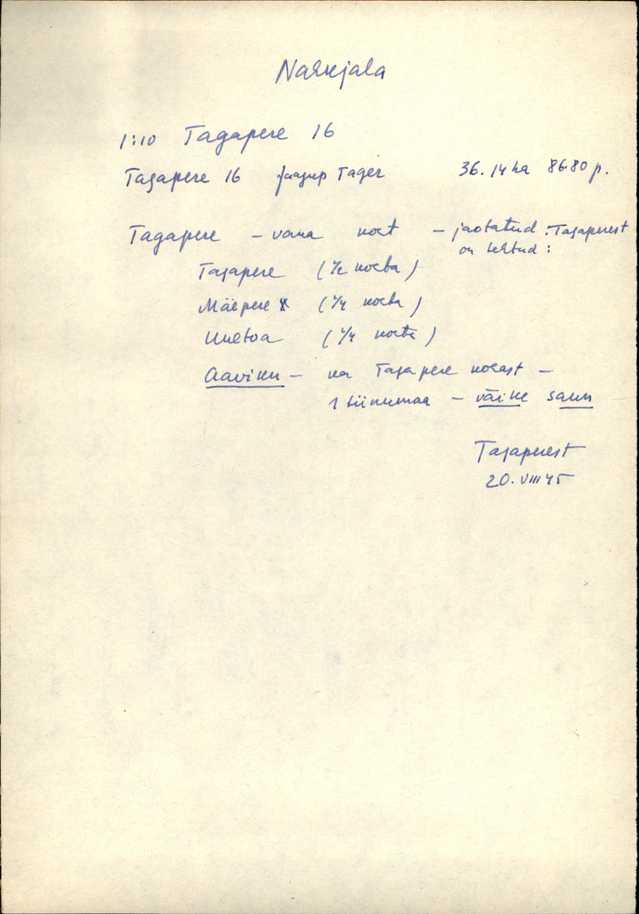 Nakkjala
1:10 Tagapere 16
Tagapere 16 Jaagup Tager 36.14 ha 86.80 p.
Tagapere – vana koht – jaotatud. Tagaperest
on tehtud:
Tagapere (1/2 kohta)
Mäepere (1/4 kohta)
Unetoa (1/4 kohta)
Aaviku – ka Tagapere kohast –
1 tiinumaa – väike saun
Tagaperest
20. VIII 45